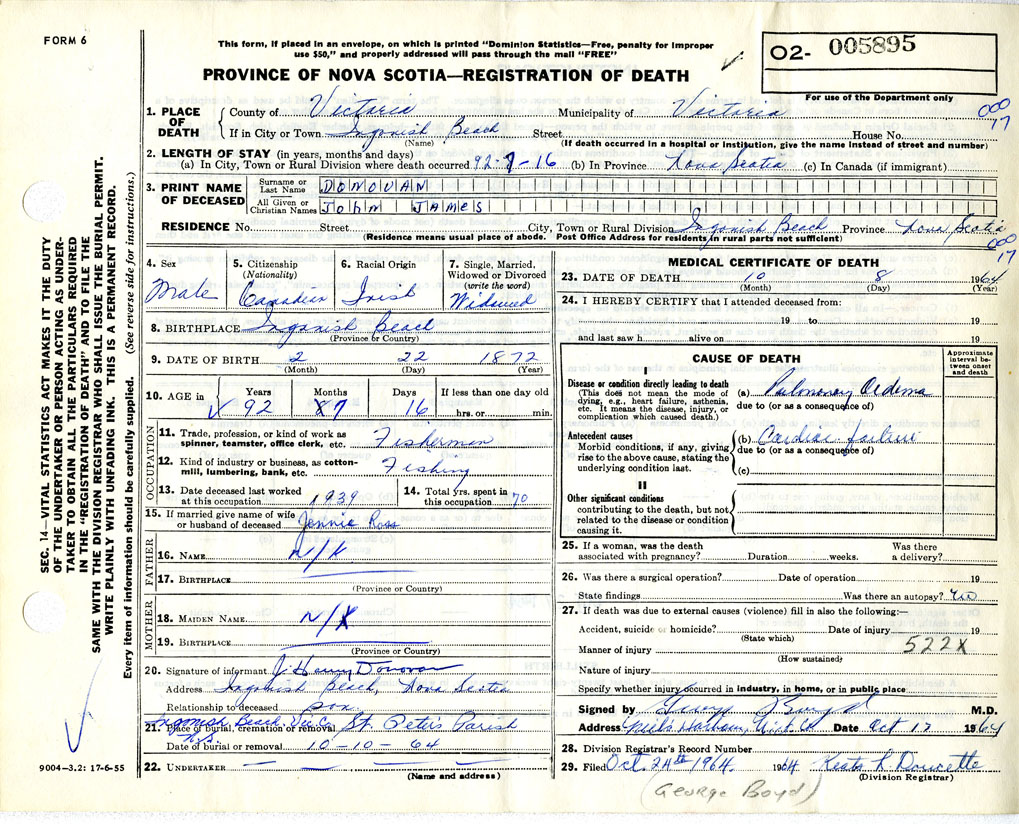 FORM 6
This form, if placed in an envelope, on which is printed "Dominion Statistics—Free, penalty for improper
use $50," and properly addressed will pass through the mail "FREE"
PROVINCE OF NOVA SCOTIA—REGISTRATION OF DEATH
02- 005895
For use of the Department only
000
17
SEC. 14—VITAL STATISTICS ACT MAKES IT THE DUTY
OF THE UNDERTAKER OR PERSON ACTING AS UNDER-
TAKER TO OBTAIN ALL THE PARTICULARS REQUIRED
IN THE "REGISTRATION OF DEATH" AND FILE THE
SAME WITH THE DIVISION REGISTRAR WHO SHALL ISSUE THE BURIAL PERMIT.
WRITE PLAINLY WITH UNFADING INK. THIS IS A PERMANENT RECORD.
Every item of information should be carefully supplied. (See reverse side for instructions.)
1. PLACE OF DEATH County of Victoria Municipality of Victoria
If in City or Town Ingonish Beach Street House No.
(Name) (If death occurred in a hospital or institution, give the name instead of street and number)
2. LENGTH OF STAY (in years, months and days)
(a) In City, Town or Rural Division where death occurred 92-7-16 (b) In Province Nova Scotia (c) In Canada (if immigrant)
3. PRINT NAME OF DECEASED Surname or Last Name DONOVAN
All Given or Christian Names JOHN JAMES
RESIDENCE No. Street City, Town or Rural Division Ingonish Beach Province Nova Scotia
(Residence means usual place of abode. Post Office Address for residents in rural parts not sufficient)
000
17
4. Sex Male
5. Citizenship (Nationality) Canadian
6. Racial Origin Irish
7. Single, Married, Widowed or Divorced (write the word) Widowed
8. BIRTHPLACE Ingonish Beach
(Province or Country)
9. DATE OF BIRTH 2 22 1872
(Month) (Day) (Year)
10. AGE in Years Months Days If less than one day old
92 7 16 hrs. or min.
OCCUPATION
11. Trade, profession, or kind of work as spinner, teamster, office clerk, etc. Fisherman
12. Kind of industry or business, as cotton-mill, lumbering, bank, etc. Fishing
13. Date deceased last worked at this occupation 1939
14. Total yrs. spent in this occupation 70
15. If married give name of wife or husband of deceased Jennie Ross
FATHER
16. NAME N/K
17. BIRTHPLACE
(Province or Country)
MOTHER
18. MAIDEN NAME N/K
19. BIRTHPLACE
(Province or Country)
20. Signature of informant J. Henry Donovan
Address Ingonish Beach, Nova Scotia
Relationship to deceased son
21. Place of burial, cremation or removal Ingonish Beach, Vic Co. N.S. St. Peters Parish
Date of burial or removal 10-10-64
22. UNDERTAKER
(Name and address)
9004-3.2: 17-6-55
MEDICAL CERTIFICATE OF DEATH
23. DATE OF DEATH 10 8 1964
(Month) (Day) (Year)
24. I HEREBY CERTIFY that I attended deceased from:
19 to 19
and last saw h alive on 19
CAUSE OF DEATH
Approximate interval between onset and death
I
Disease or condition directly leading to death
(This does not mean the mode of dying, e.g., heart failure, asthenia, etc. It means the disease, injury, or complication which caused death.)
(a) Pulmonary Oedema
due to (or as a consequence of)
Antecedent causes
Morbid conditions, if any, giving rise to the above cause, stating the underlying condition last.
(b) Cardiac failure
due to (or as a consequence of)
(c)
II
Other significant conditions
contributing to the death, but not related to the disease or condition causing it.
25. If a woman, was the death associated with pregnancy? Duration weeks. Was there a delivery?
26. Was there a surgical operation? Date of operation 19
State findings Was there an autopsy? no
27. If death was due to external causes (violence) fill in also the following:—
Accident, suicide or homicide? Date of injury 19
(State which)
Manner of injury 522X
(How sustained)
Nature of injury
Specify whether injury occurred in industry, in home, or in public place
Signed by George Boyd M.D.
Address Neils Harbour, Vict. Co Date Oct 17 1964
28. Division Registrar's Record Number
29. Filed Oct. 24th 1964. 1964 Doucette
(Division Registrar)
(George Boyd)